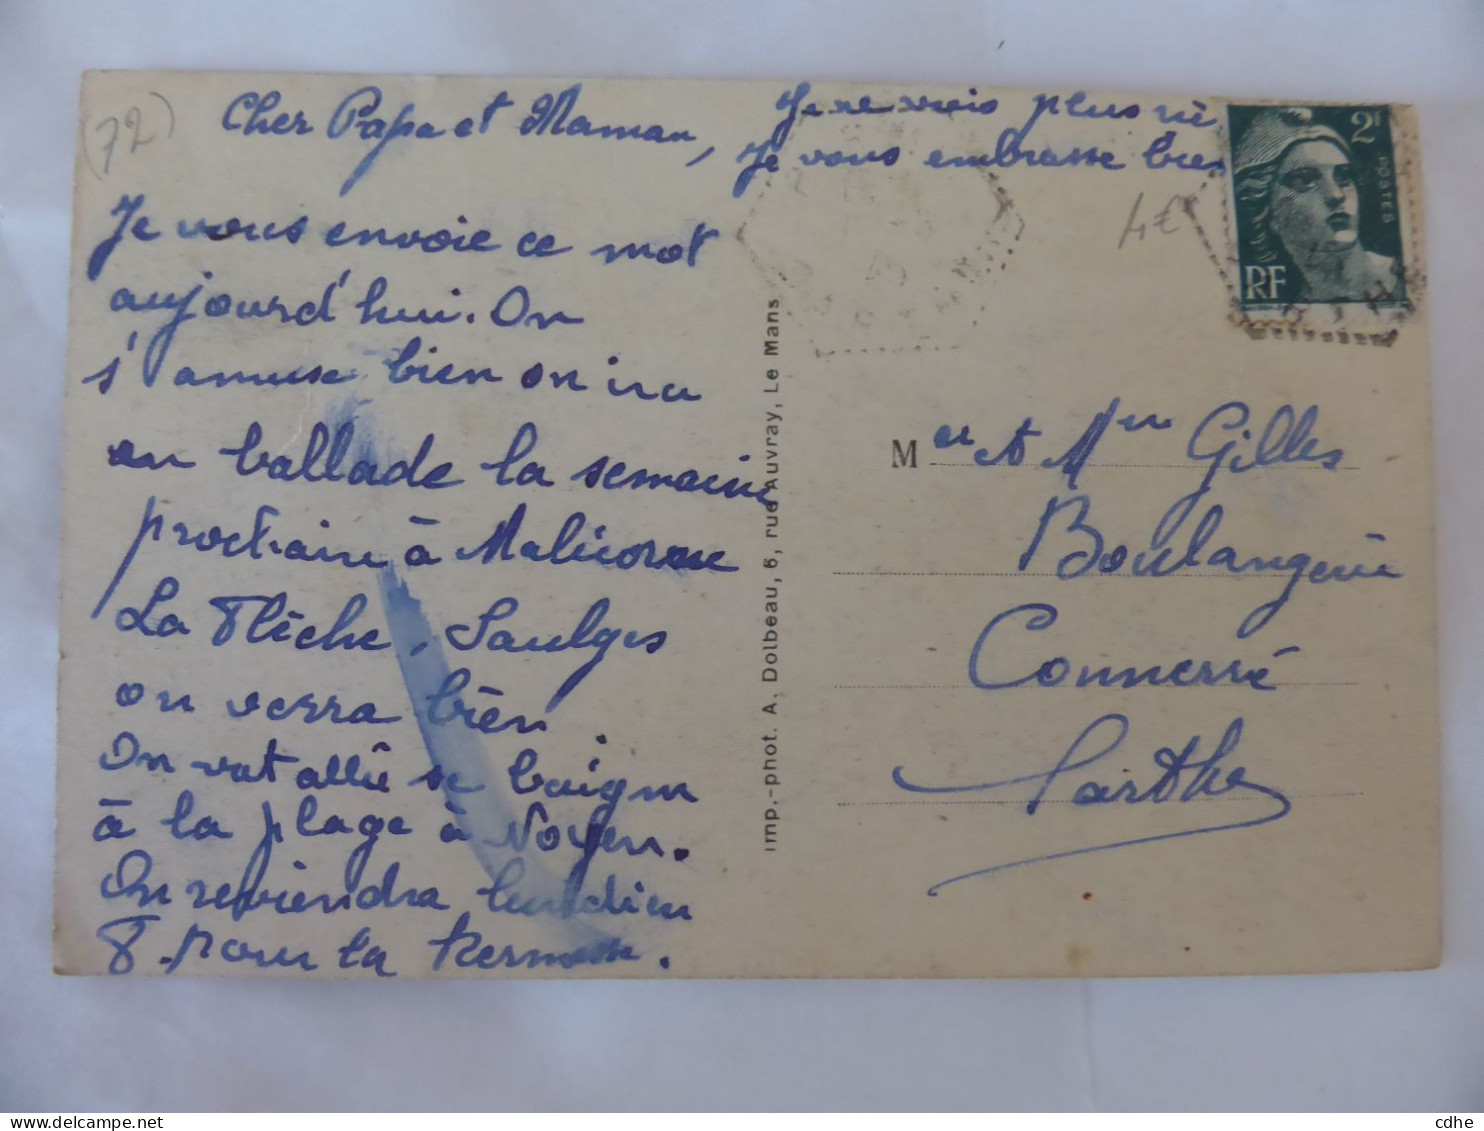 (72)
Cher Papa et Maman,
Je vous envoie ce mot
aujourd'hui. On
s'amuse bien on ira
en ballade la semaine
prochaine à Malicorne
La Flèche, Saulges
on verra bien.
On vat allé se baigner
à la plage à Noyen.
On reviendra lundi
8. pour la Kermesse.
Je ne vois plus
Je vous embrasse bien
4€
2F
POSTES
RF
Imp.-phot. A. Dolbeau, 6, rue Auvray, Le Mans
M et Mme Gilles
Boulangerie
Connerré
Sarthe
cdhe